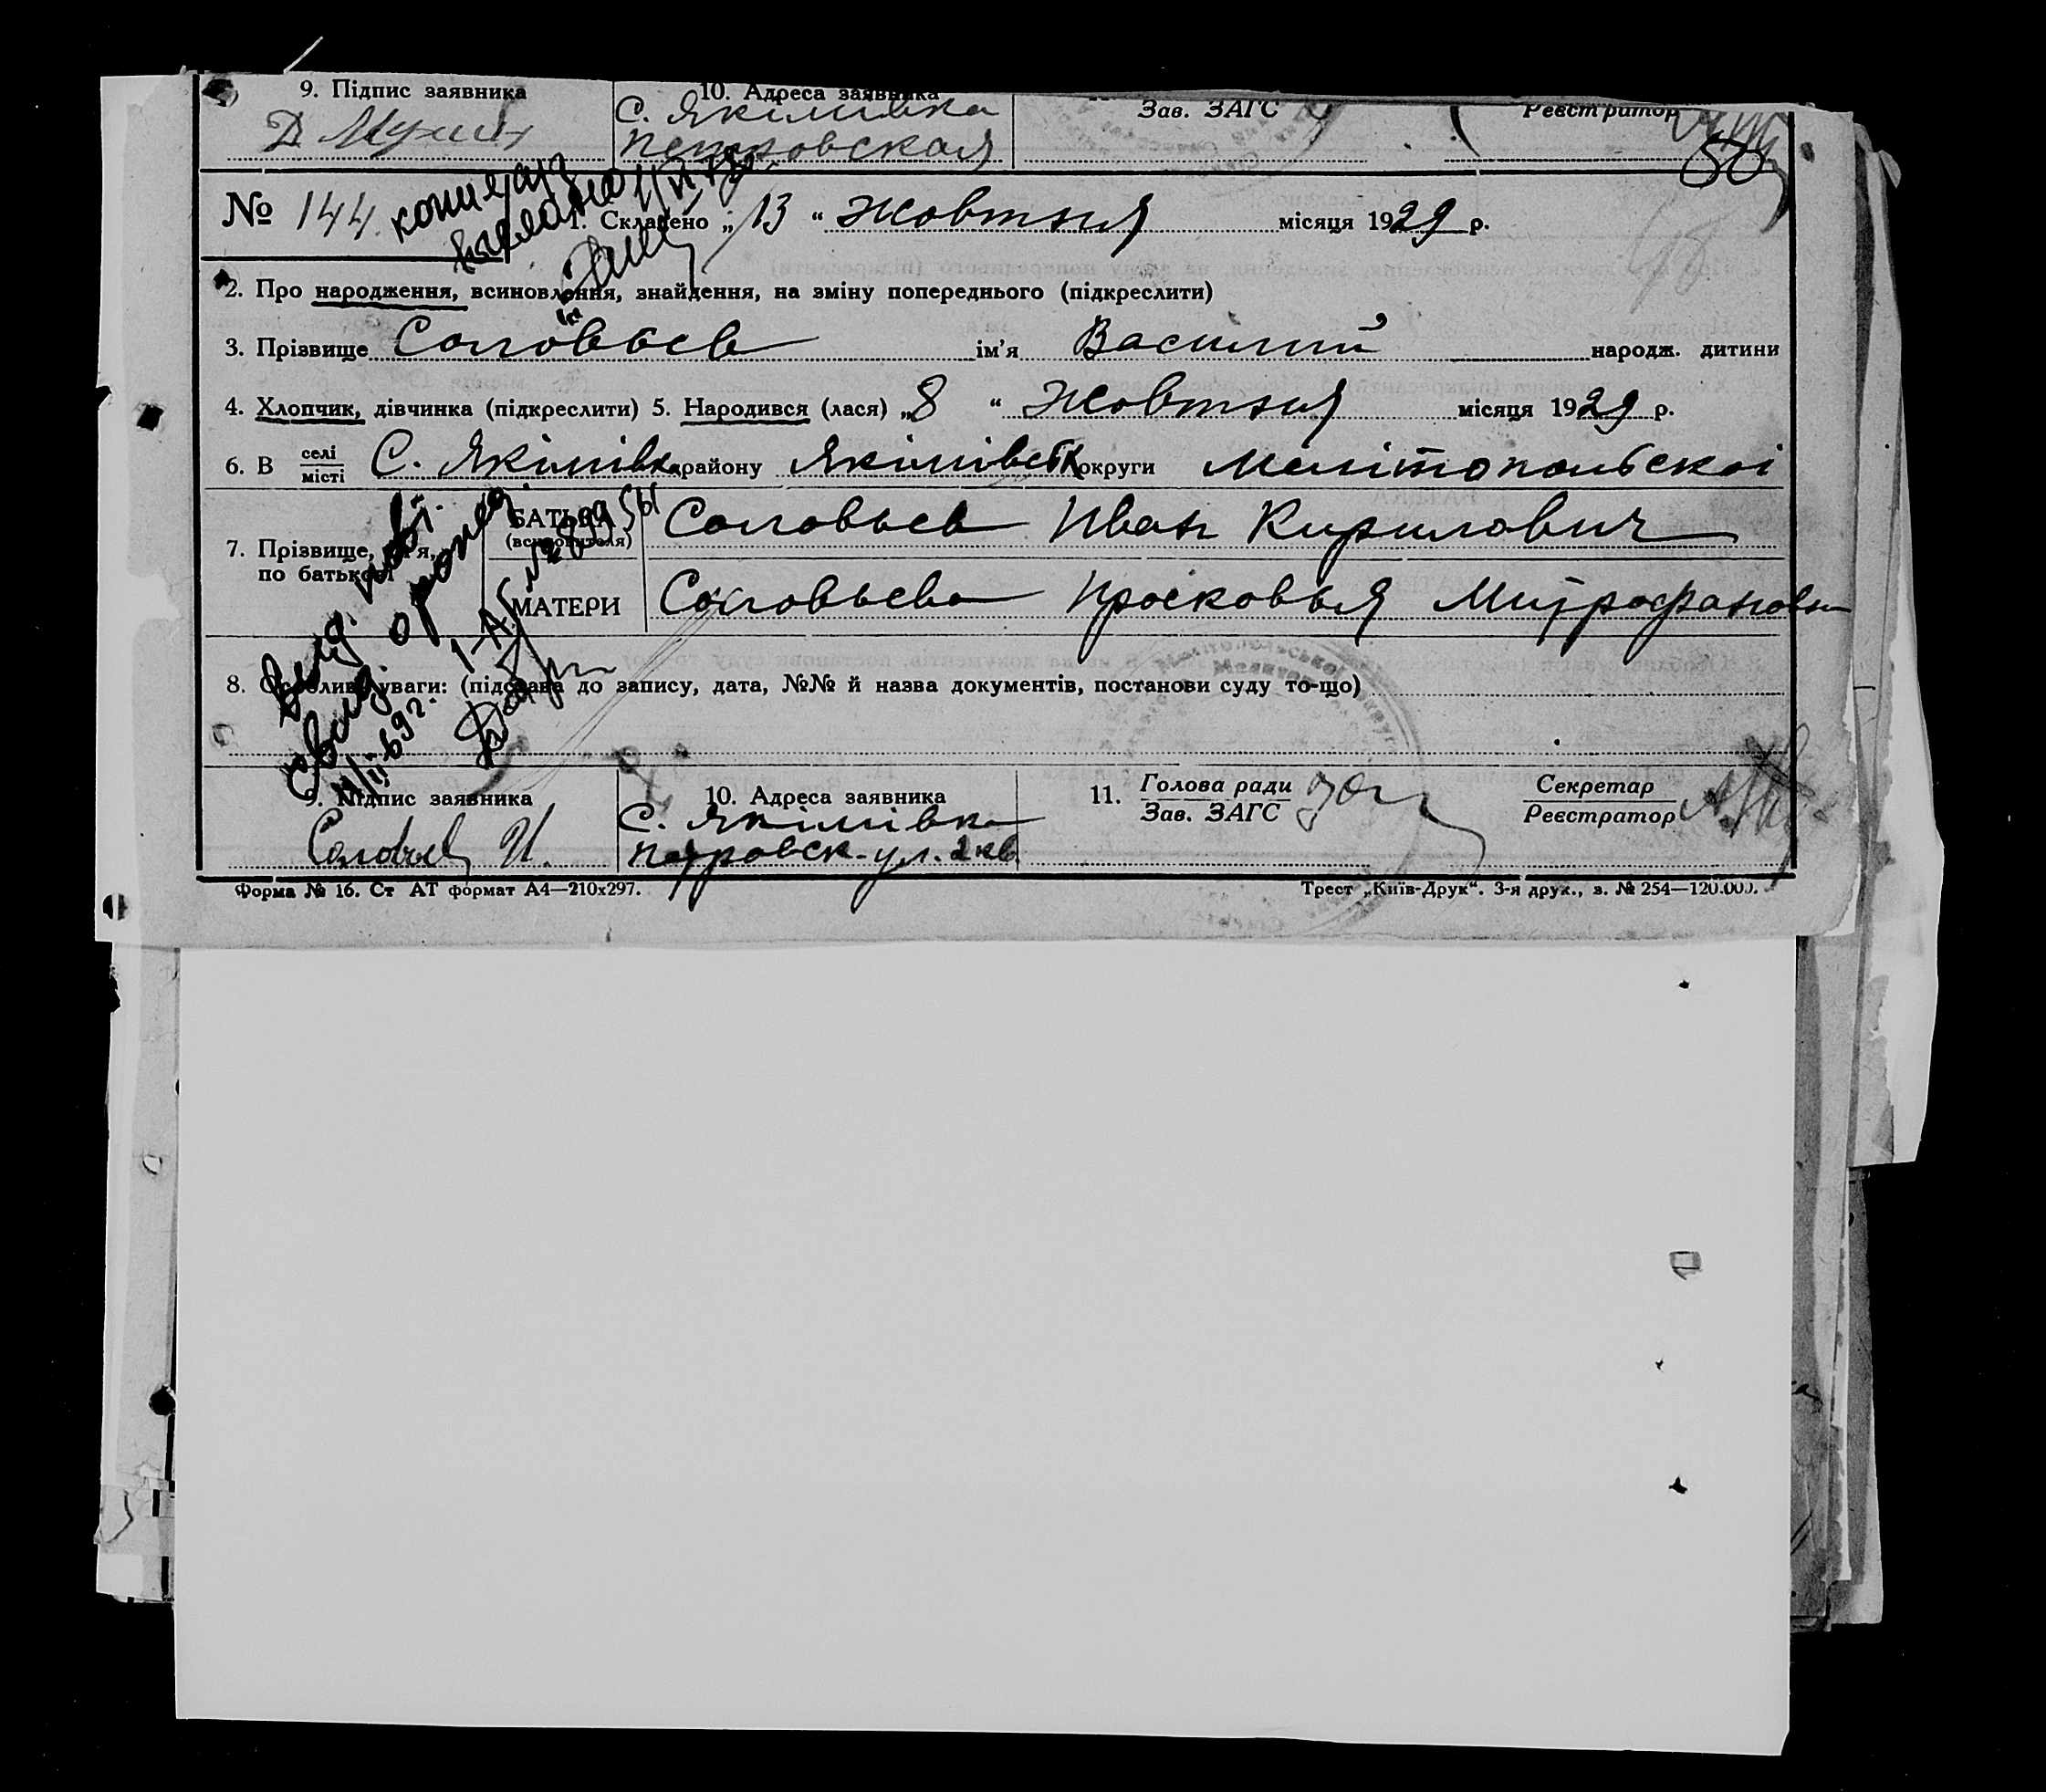 9. Підпис заявника
Д Мухин
10. Адреса заявника
С. Якімівка
Петровская
Зав. ЗАГС
Реєстратор
50
48
№ 144. копия
выслана
1. Складено „13“ жовтня місяця 1929 р.
2. Про народження, всиновлення, знайдення, на зміну попереднього (підкреслити)
3. Прізвище Соловьев ім’я Василий народж. дитини
4. Хлопчик, дівчинка (підкреслити) 5. Народився (лася) „8“ жовтня місяця 1929 р.
6. В селі/місті С. Якімівка району Якімівськ округи Мелітопольскоі
7. Прізвище, ім’я, по батькові
БАТЬКА (всиновителя) Соловьев Иван Кирилович
МАТЕРИ Соловьева Просковья Митрофановн
Выд. повт.
свид. о рожд.
8. Особливі уваги: (підстава до запису, дата, №№ й назва документів, постанови суду то-що)
9. Підпис заявника
Соловьев И.
10. Адреса заявника
С. Якімівка
Петровск. ул. 2 кв.
11. Голова ради
Зав. ЗАГС
Секретар
Реєстратор
Форма № 16. Ст АТ формат А4—210х297.
Трест „Київ-Друк“. 3-я друк., з. № 254—120.000.